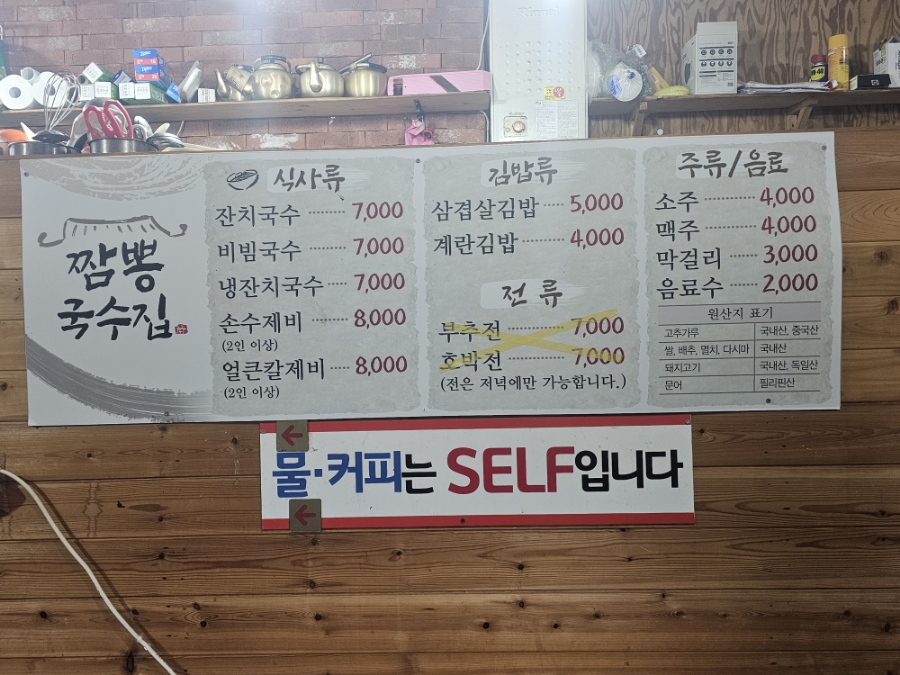 짬뽕
국수집
식사류
잔치국수 ········ 7,000
비빔국수 ········ 7,000
냉잔치국수 ····· 7,000
손수제비 ········ 8,000
(2인 이상)
얼큰칼제비 ····· 8,000
(2인 이상)
김밥류
삼겹살김밥 ······· 5,000
계란김밥 ·········· 4,000
전 류
부추전 ············· 7,000
호박전 ············· 7,000
(전은 저녁에만 가능합니다.)
주류/음료
소주 ··········· 4,000
맥주 ··········· 4,000
막걸리 ········ 3,000
음료수 ········ 2,000
원산지 표기
고추가루 국내산, 중국산
쌀, 배추, 멸치, 다시마 국내산
돼지고기 국내산, 독일산
문어 필리핀산
물·커피는 SELF입니다